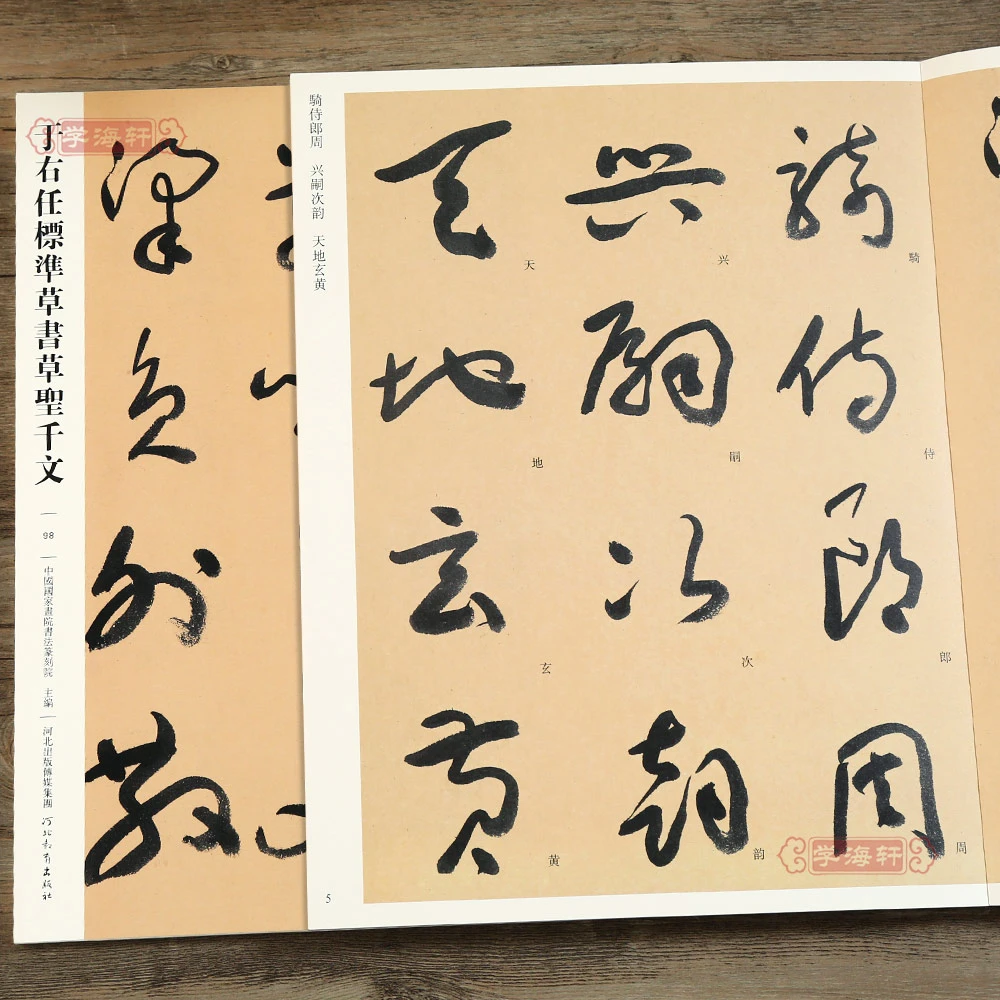 于右任標準草書草聖千文
98
中國國家畫院書法篆刻院 主編
河北出版傳媒集團
河北教育出版社
学海轩
騎侍郎周 兴嗣次韵 天地玄黄
騎侍郎周
兴嗣次韵
天地玄黄
騎
侍
郎
周
兴
嗣
次
韵
天
地
玄
黄
5
学海轩